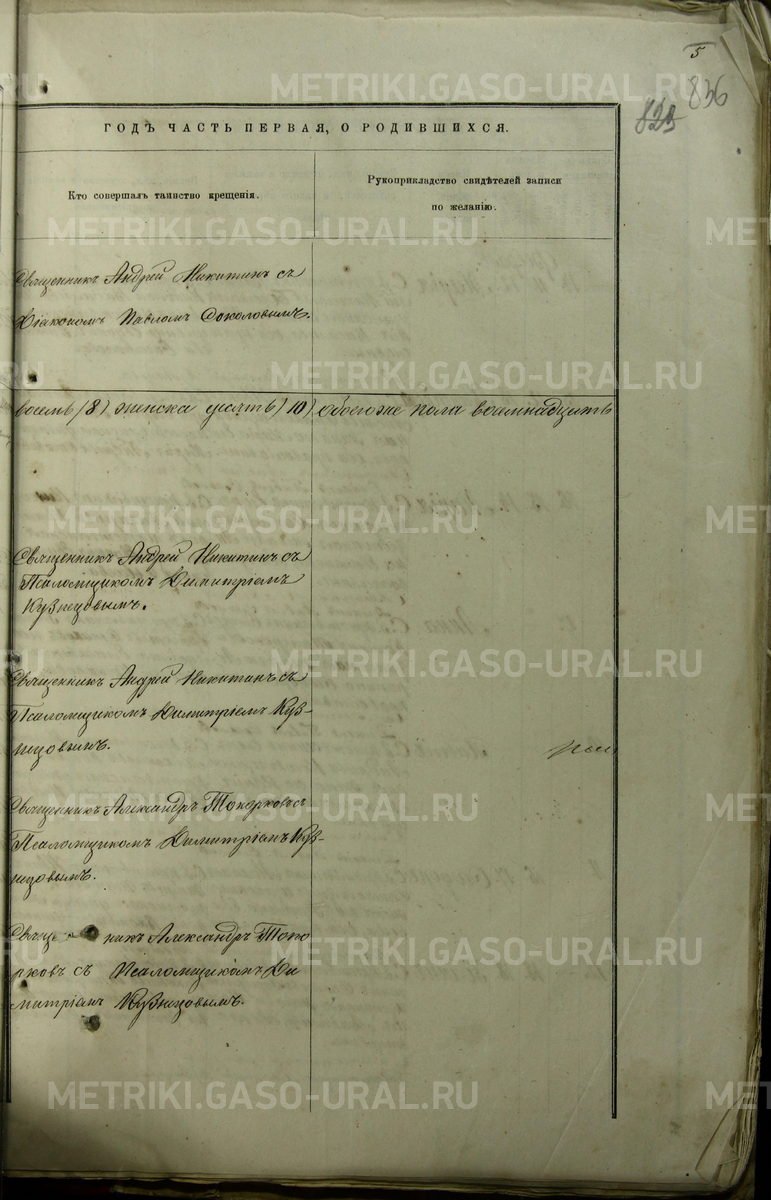 5
836
823
ГОДЪ ЧАСТЬ ПЕРВАЯ, О РОДИВШИХСЯ.
Кто совершалъ таинство крещенія.
Рукоприкладство свидѣтелей записи
по желанію.
Священникъ Андрей Никитинъ съ
Діакономъ Павломъ Соколовымъ.
восемь (8) женска десять (10) обоего же пола восемнадцать
Священникъ Андрей Никитинъ съ
Псаломщикомъ Димитріемъ
Кузнецовымъ.
Священникъ Андрей Никитинъ съ
Псаломщикомъ Димитріемъ Куз-
нецовымъ.
Священникъ Александръ Топорковъ съ
Псаломщикомъ Димитріемъ Куз-
нецовымъ.
Священникъ Александръ Топо
рковъ съ Псаломщикомъ Ди
митріемъ Кузнецовымъ.
METRIKI.GASO-URAL.RU